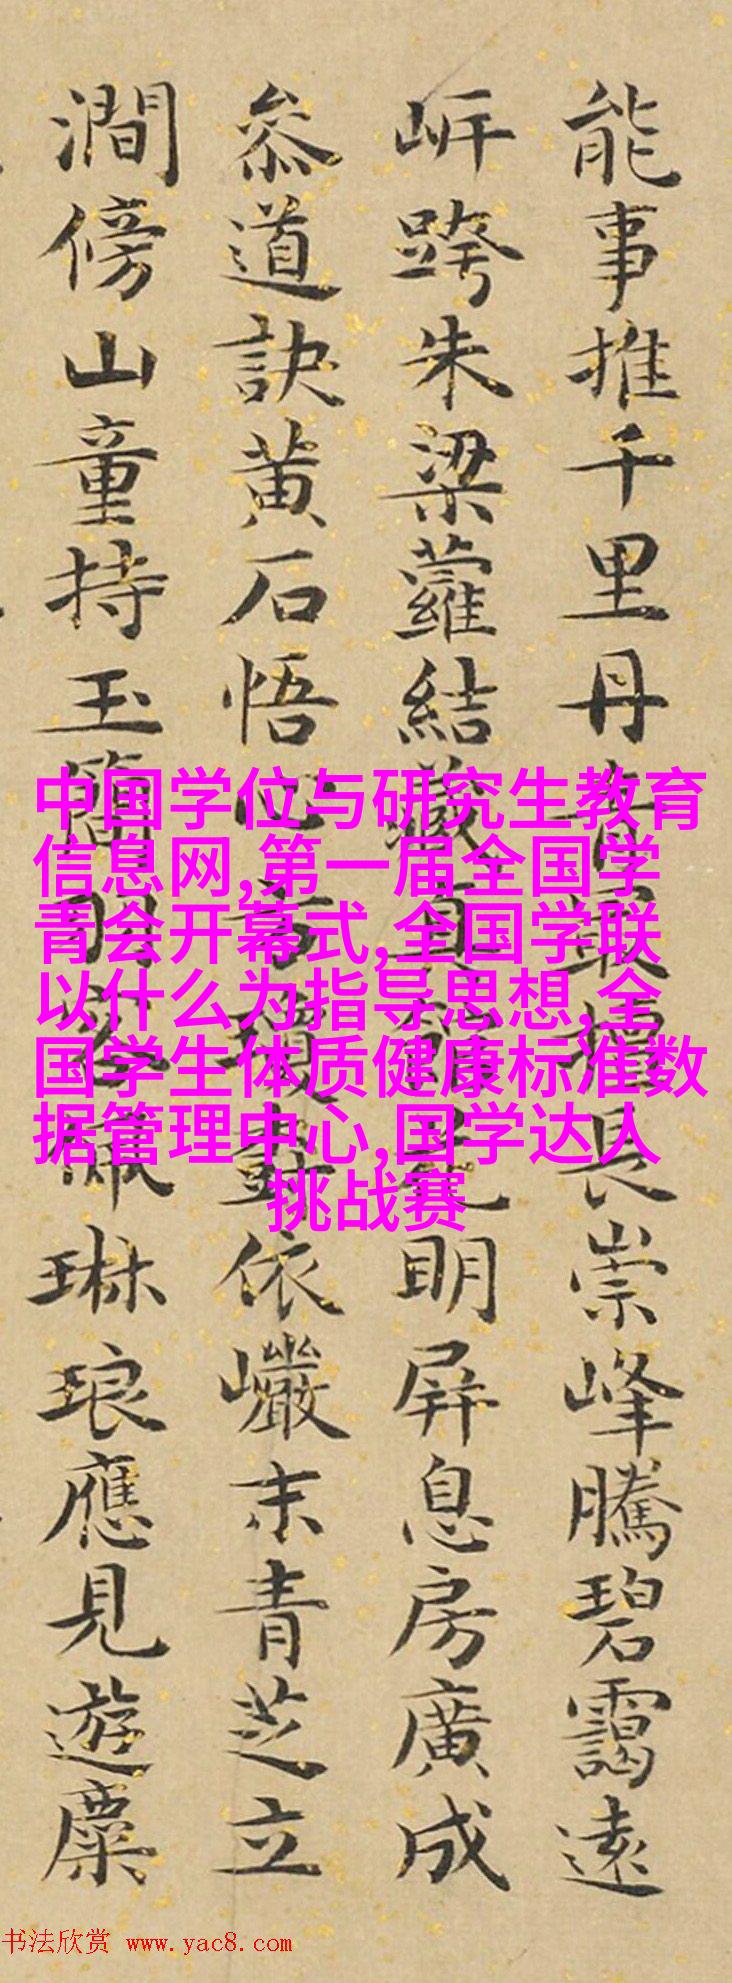 能事推千里丹青最擅長崇峰騰碧靄遠
岍跨朱梁蘿結明屏息房廣成
叅道訣黄石悟心方積翠依巖末青芝立
澗傍山童持玉簡羽客珮琳琅應見遊麋
中国学位与研究生教育
信息网,第一届全国学
青会开幕式,全国学联
以什么为指导思想,全
国学生体质健康标准数
据管理中心,国学达人
挑战赛
书法欣赏 www.yac8.com